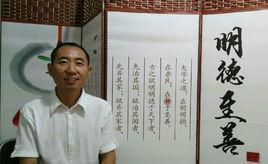 明德至善
大学之道，在明明德，
在亲民，在止于至善。
古之欲明明德于天下者，
先治其国；欲治其国者，
先齐其家；欲齐其家者，